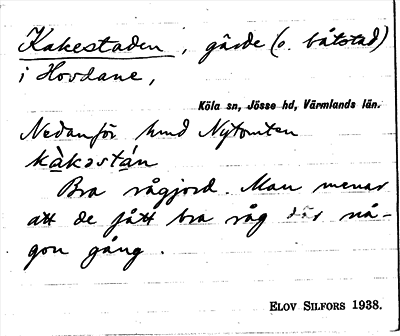 Kakestaden, gärde (o. båtstad)
i Hovdane,
Köla sn, Jösse hd, Värmlands län.
Nedanför hmd Nytomten
kàkəstán
Bra rågjord. Man menar
att de fått bra råg där nå-
gon gång.
ELOV SILFORS 1938.